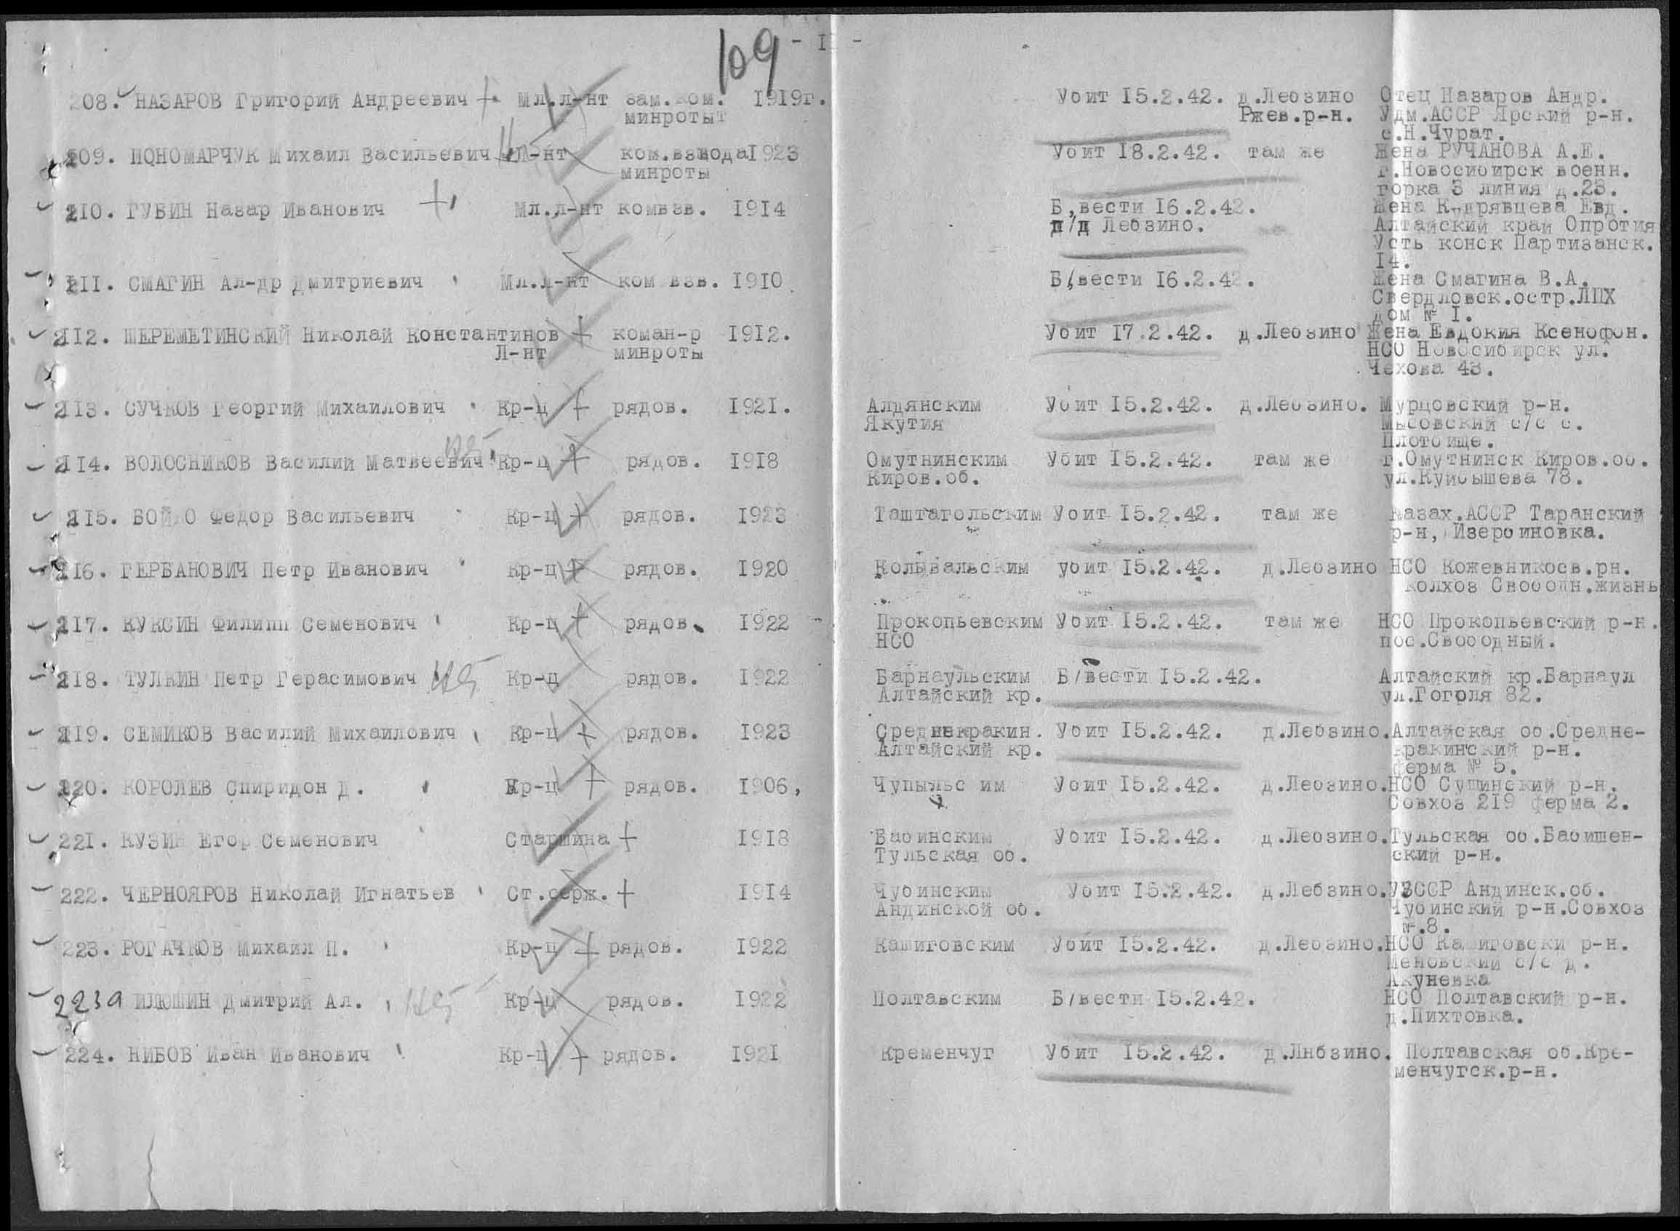 109 - I -
208. НАЗАРОВ Григорий Андреевич Мл.л-нт зам.ком. 1919г. Убит 15.2.42. д.Лебзино Отец Назаров Андр.
минроты Ржев.р-н. Удм.АССР Ярский р-н.
с.Н.Чурат.
209. ПОНОМАРЧУК Михаил Васильевич Л-нт ком.взвода 1923 Убит 18.2.42. там же Жена РУЧАНОВА А.Е.
минроты г.Новосибирск военн.
горка 3 линия д.23.
210. ГУБИН Назар Иванович Мл.л-нт комвзв. 1914 Б,вести 16.2.42. Жена Кудрявцева Евд.
п/д Лебзино. Алтайский край Опротия
Усть конск Партизанск.
14.
211. СМАГИН Ал-др Дмитриевич Мл.л-нт ком взв. 1910 Б/вести 16.2.42. Жена Смагина В.А.
Свердловск.остр.ЛПХ
дом № 1.
212. ШЕРЕМЕТИНСКИЙ Николай Константинов коман-р 1912. Убит 17.2.42. д.Лебзино Жена Евдокия Ксенофон.
Л-нт минроты НСО Новосибирск ул.
Чехова 43.
213. СУЧКОВ Георгий Михаилович Кр-ц рядов. 1921. Алдянским Убит 15.2.42. д.Лебзино. Мурцовский р-н.
Якутия Мысовский с/с с.
Плотбище.
214. ВОЛОСНИКОВ Василий Матвеевич НБ Кр-ц рядов. 1918 Омутнинским Убит 15.2.42. там же г.Омутнинск Киров.об.
Киров.об. ул.Куйбышева 78.
215. БОЙ О Федор Васильевич Кр-ц рядов. 1923 Таштагольским Убит 15.2.42. там же Казах.АССР Таранский
р-н, Изербиновка.
216. ГЕРБАНОВИЧ Петр Иванович Кр-ц рядов. 1920 Колывальским убит 15.2.42. д.Лебзино НСО Кожевникосв.рн.
колхоз Свободн.жизнь
217. КУКСИН Филипп Семенович Кр-ц рядов. 1922 Прокопьевским Убит 15.2.42. там же НСО Прокопьевский р-н.
НСО пос.Свободный.
218. ТУЛКИН Петр Герасимович НБ Кр-ц рядов. 1922 Барнаульским Б/вести 15.2.42. Алтайский кр.Барнаул
Алтайский кр. ул.Гоголя 82.
219. СЕМИКОВ Василий Михаилович Кр-ц рядов. 1923 Среднекракин. Убит 15.2.42. д.Лебзино. Алтайская об.Средне-
Алтайский кр. кракинский р-н.
ферма № 5.
220. КОРОЛЕВ Спиридон Д. Кр-ц рядов. 1906, Чупыльс им Убит 15.2.42. д.Лебзино. НСО Сушинский р-н.
Совхоз 219 ферма 2.
221. КУЗИН Егор Семенович Старшина 1918 Бабинским Убит 15.2.42. д.Лебзино. Тульская об.Бабишен-
Тульская об. ский р-н.
222. ЧЕРНОЯРОВ Николай Игнатьев Ст.серж. 1914 Чубинским Убит 15.2.42. д.Лебзино. УЗССР Андинск.об.
Андинской об. Чубинский р-н.Совхоз
№.8.
223. РОГАЧКОВ Михаил П. Кр-ц рядов. 1922 Кашиговским Убит 15.2.42. д.Лебзино. НСО Кашиговски р-н.
Меновский с/с д.
Акуневка
223а ИЛЮШИН Дмитрий Ал. НБ Кр-ц рядов. 1922 Полтавским Б/вести 15.2.42. НСО Полтавский р-н.
д.Пихтовка.
224. НИБОВ Иван Иванович Кр-ц рядов. 1921 Кременчуг Убит 15.2.42. д.Лнбзино. Полтавская об.Кре-
менчугск.р-н.